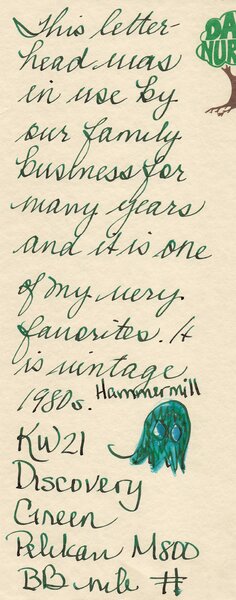 This letter-
head was
in use by
our family
business for
many years
and it is one
of my very
favorites. It
is vintage
1980s. Hammermill
KW21
Discovery
Green
Pelikan M800
BB nib #